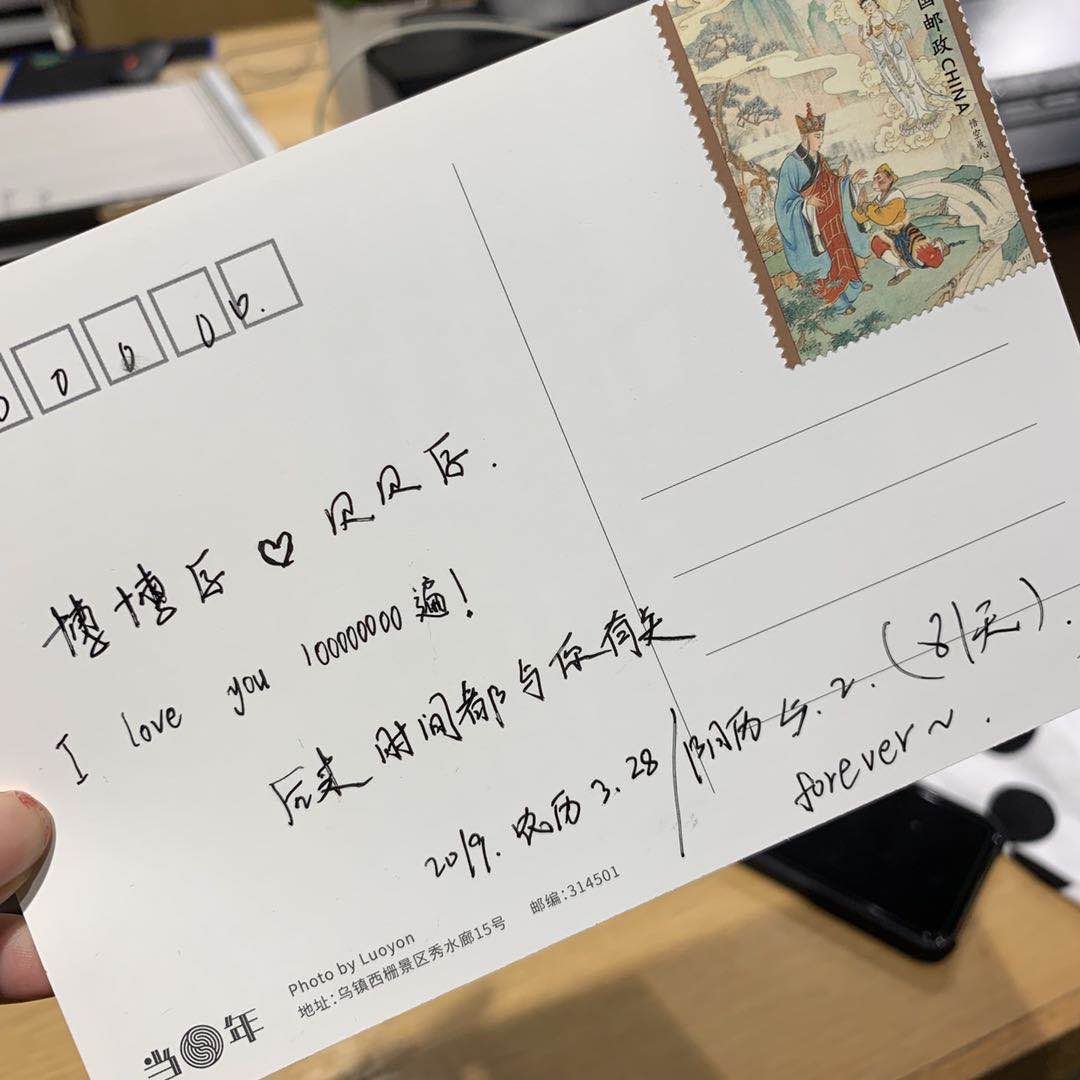 国邮政 CHINA
0 0 0 0 0.
博博 ♡ 贝贝
I love you 100000000遍!
后来时间都与你有关
2019. 农历 3.28/阳历 5.2.(81天).
forever~.
Photo by Luoyon
地址:乌镇西栅景区秀水廊15号 邮编:314501
当年